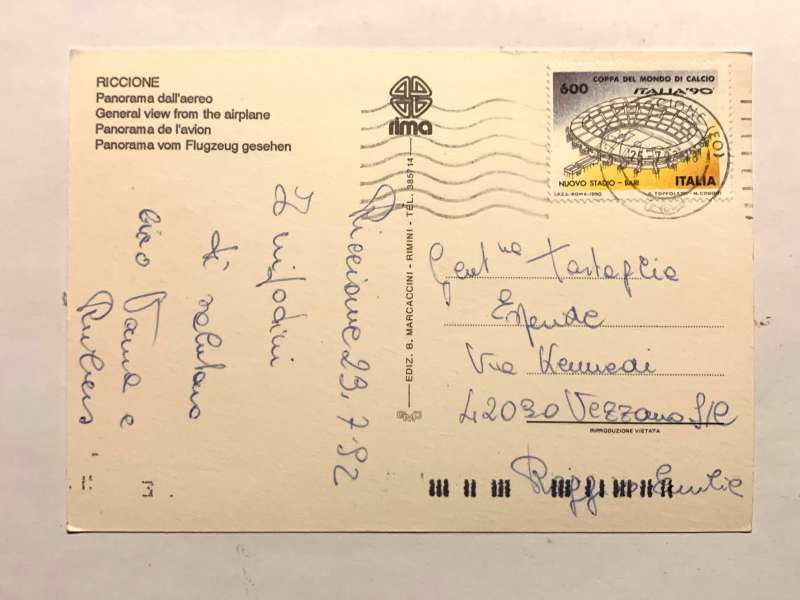 RICCIONE
Panorama dall'aereo
General view from the airplane
Panorama de l'avion
Panorama vom Flugzeug gesehen
rima
EDIZ. B. MARCACCINI - RIMINI - TEL. 385714
600
COPPA DEL MONDO DI CALCIO
ITALIA'90
NUOVO STADIO - BARI
ITALIA
I.P.Z.S. - ROMA - 1990
RICCIONE (FO)
Riccione 23.7.92
I
ti salutano
ciao
e
Gent.na Tartaglia
Via Kennedi
42030 Vezzano S/C
RIPRODUZIONE VIETATA
Reggio Emilia